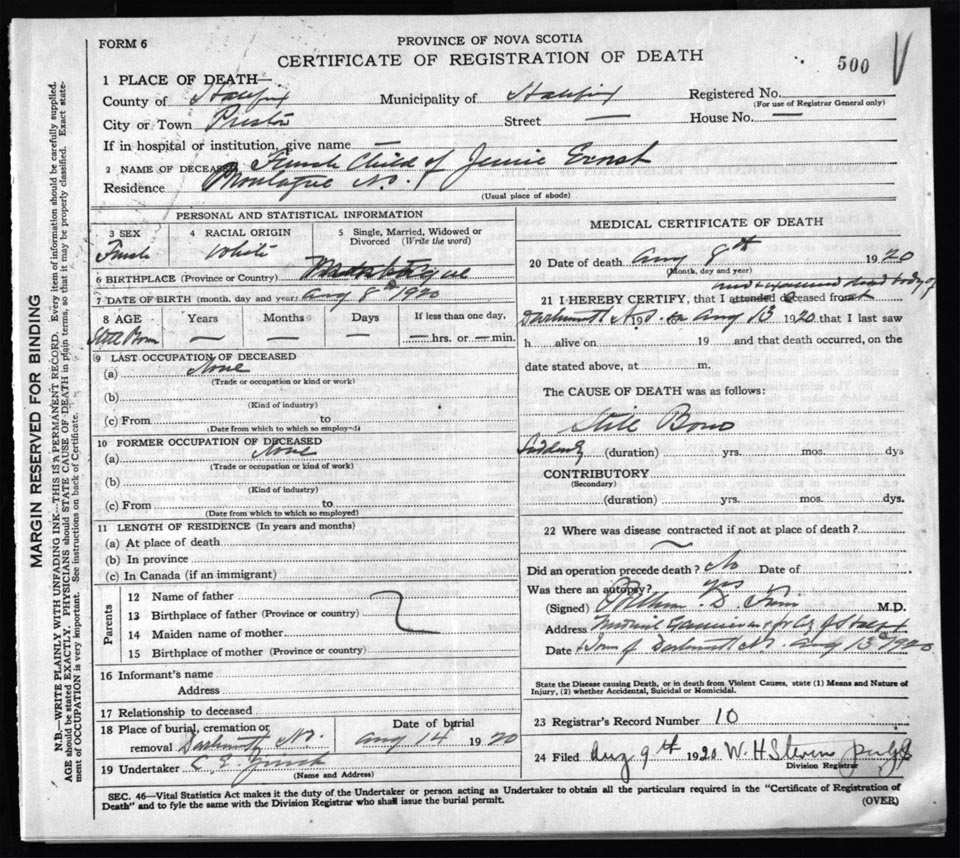 FORM 6
PROVINCE OF NOVA SCOTIA
CERTIFICATE OF REGISTRATION OF DEATH
500
1 PLACE OF DEATH—
County of Halifax Municipality of Halifax Registered No.
(For use of Registrar General only)
City or Town Preston Street — House No. —
If in hospital or institution, give name —
2 NAME OF DECEASED Female Child of Jennie Ernst
Residence Montague N.S.
(Usual place of abode)
PERSONAL AND STATISTICAL INFORMATION
3 SEX
Female
4 RACIAL ORIGIN
White
5 Single, Married, Widowed or Divorced (Write the word)
6 BIRTHPLACE (Province or Country) Montague
7 DATE OF BIRTH (month, day and year) Aug 8th 1920
8 AGE Years Months Days If less than one day,
Still Born — — — — hrs. or — min.
9 LAST OCCUPATION OF DECEASED
(a) None
(Trade or occupation or kind or work)
(b)
(Kind of industry)
(c) From to
(Date from which to which so employed)
10 FORMER OCCUPATION OF DECEASED
(a) None
(Trade or occupation or kind of work)
(b)
(Kind of industry)
(c) From to
(Date from which to which so employed)
11 LENGTH OF RESIDENCE (In years and months)
(a) At place of death
(b) In province
(c) In Canada (if an immigrant)
Parents
12 Name of father
13 Birthplace of father (Province or country)
14 Maiden name of mother
15 Birthplace of mother (Province or country)
16 Informant's name
Address
17 Relationship to deceased
18 Place of burial, cremation or removal Dartmouth N.S.
Date of burial
Aug 14 1920
19 Undertaker C. E.
(Name and Address)
MEDICAL CERTIFICATE OF DEATH
20 Date of death Aug 8th 1920
(Month, day and year)
dead body of
21 I HEREBY CERTIFY, that I attended deceased from at
Dartmouth N.S. 19 Aug 13 1920 that I last saw
h alive on 19 and that death occurred, on the
date stated above, at m.
The CAUSE OF DEATH was as follows:
Still Born
Suddenly (duration) yrs. mos. dys
CONTRIBUTORY
(Secondary)
(duration) yrs. mos. dys.
22 Where was disease contracted if not at place of death?
Did an operation precede death? No Date of
Was there an autopsy? yes
(Signed) William D. M.D.
Address Medical Examiner for City of Halifax
Date & Town of Dartmouth N.S. Aug 13th 1920
State the Disease causing Death, or in death from Violent Causes, state (1) Means and Nature of
Injury, (2) whether Accidental, Suicidal or Homicidal.
23 Registrar's Record Number 10
24 Filed Aug 9th 1920 W. H. Stevens
Division Registrar
SEC. 46—Vital Statistics Act makes it the duty of the Undertaker or person acting as Undertaker to obtain all the particulars required in the "Certificate of Registration of
Death" and to fyle the same with the Division Registrar who shall issue the burial permit.
(OVER)
MARGIN RESERVED FOR BINDING
N.B.—WRITE PLAINLY WITH UNFADING INK—THIS IS A PERMANENT RECORD. Every item of information should be carefully supplied.
AGE should be stated EXACTLY. PHYSICIANS should STATE CAUSE OF DEATH in plain terms, so that it may be properly classified. Exact state-
ment of OCCUPATION is very important. See instructions on back of Certificate.